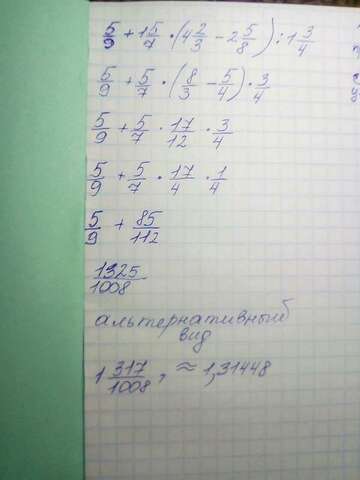 5/9 + 1 5/7 · (4 2/3 - 2 5/8) : 1 3/4
5/9 + 5/7 · (8/3 - 5/4) · 3/4
5/9 + 5/7 · 17/12 · 3/4
5/9 + 5/7 · 17/4 · 1/4
5/9 + 85/112
1325/1008
альтернативный
вид
1 317/1008, ≈ 1,31448